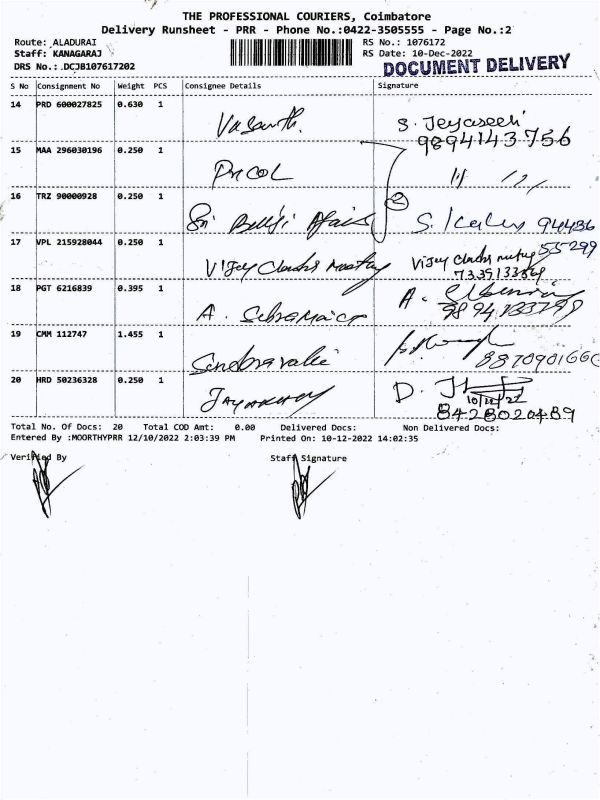 THE PROFESSIONAL COURIERS, Coimbatore
Delivery Runsheet - PRR - Phone No.:0422-3505555 - Page No.:2
Route: ALADURAI
RS No.: 1076172
Staff: KANAGARAJ
RS Date: 10-Dec-2022
DRS No.: DCJB107617202
DOCUMENT DELIVERY
S No Consignment No Weight PCS Consignee Details Signature
14 PRD 600027825 0.630 1 Vasanth. S. Jeyaseeli
9894143756
15 MAA 296030196 0.250 1 PRICOL
16 TRZ 90000928 0.250 1 Sri 94436
55299
17 VPL 215928044 0.250 1 Vijey Vijey
7339133569
18 PGT 6216839 0.395 1 A. A.
19 CMM 112747 1.455 1
20 HRD 50236328 0.250 1 D.
10/12/22
8428020489
Total No. Of Docs: 20 Total COD Amt: 0.00 Delivered Docs: Non Delivered Docs:
Entered By :MOORTHYPRR 12/10/2022 2:03:39 PM Printed On: 10-12-2022 14:02:35
Verified By Staff Signature